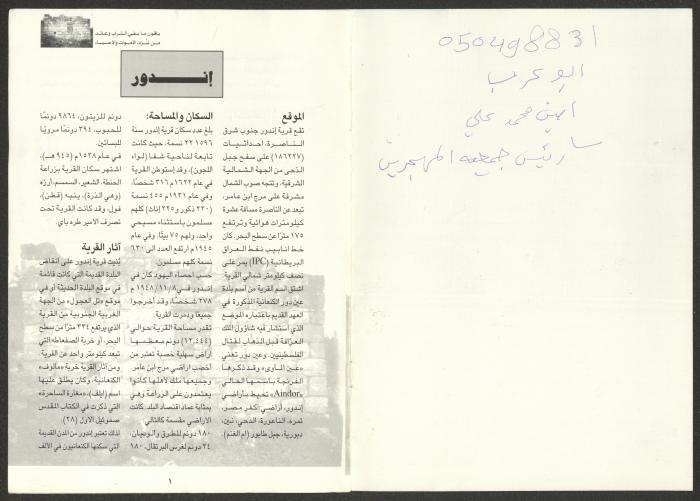 باقون ما بقي التراب وعائدون
من نترك الأموات والأحياء
إنـــدور
الموقع
تقع قرية إندور جنوب شرق
الناصرة، احداثيات
(١٨٦٢٢٧) على سفح جبل
الدّحي من الجهة الشمالية
الشرقية، وتتجه صوب الشمال
مشرفة على مرج ابن عامر،
تبعد عن الناصرة مسافة عشرة
كيلومترات هوائية وترتفع
١٧٥ مترًا عن سطح البحر. كان
خط انابيب نفط العراق
البريطانية (IPC) يمر على
نصف كيلومتر شمالي القرية.
اشتق اسم القرية من اسم بلدة
عين دور الكنعانية المذكورة في
العهد القديم باعتباره الموضع
الذي استشار فيه شاؤول الملك
العرّافة قبل الذهاب لقتال
الفلسطينيين. وعين دور تعني
«عين المأوى» وقد ذكرها
الفرنجة باسمها الحالي
«Aindor» تحيط بأراضي
إندور، أراضي كفر مصر،
تمره، الناعورة، الدحي، نين،
دبورية، جبل طابور (ام الغنم).
السكان والمساحة:
بلغ عدد سكان قرية إندور سنة
١٥٩٦ ٢٢ نسمة، حيث كانت
تابعة لناحية شفا (لواء
اللجون). وقد إستوطن القرية
في عام ١٦٢٢م ٣١٦ شخصًا،
وفي عام ١٩٣١م ٤٥٥ نسمة
(٢٣٠ ذكور و٢٢٥ إناث) كلهم
مسلمون باستثناء مسيحي
واحد، ولهم ٧٥ بيتًا. وفي عام
١٩٤٥م ارتفع العدد الى ٦٣٠
نسمة كلهم مسلمون.
حسب احصاء اليهود كان في
إندور في ١٩٤٨/١١/٨م
٢٧٨ شخصًا، وقد أخرجوا
جميعًا ودمرت القرية.
تقدر مساحة القرية حوالي
(١٢,٤٤٤) دونم بعظمها
أراض سهلية خصبة تعتبر من
أخصب أراضي مرج ابن عامر.
وجميعها ملك لأهلها كانوا
يعتمدون على الزراعة وهي
بمثابة عماد اقتصاد البلد. كانت
الاراضي مقسمة كالتالي
١٨٠ دونم للطرق والوديان،
٢٤ دونم لغرس البرتقال، ١٨٠
دونم للزيتون، ٩٨٦٤ دونمًا
للحبوب، ٣٩٤ دونمًا مرويًا
للبساتين.
في عام ١٥٣٨م (٩٤٥ هـ)،
اشتهر سكان القرية بزراعة
الحنطة، الشعير، السمسم، أرزه
(وهي الذرة)، ينبه (قطن)،
فول، وقد كانت القرية تحت
تصرف الامير طره باي.
آثار القرية
بُنيت قرية إندور على أنقاض
البلدة القديمة التي كانت قائمة
في موقع البلدة الحديثة أو في
موقع «تل العجول» من الجهة
الغربية الجنوبية من القرية
الذي يرتفع ٣٣٤ مترًا من سطح
البحر، أو خربة الصفصافه التي
تبعد كيلومتر واحد عن القرية.
ومن آثار القرية خربة «مالوف»
الكنعانية. وكان يطلق عليها
اسم (ايلف)، «مغارة الساحرة»
التي ذكرت في الكتاب المقدس
صموئيل الأول (٢٨).
لذلك تعتبر إندور من المدن القديمة
التي سكنها الكنعانيون في الألف
١
050498831
ابو عرب
امين محمد علي
سا رئيس جمعية المهجرين